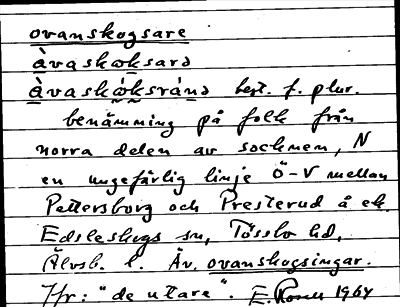 ovanskogsare
àvaskoksarə
àvaskóksránə best. f. plur.
benämning på folk från
norra delen av socknen, N
en ungefärlig linje Ö-V mellan
Pettersborg och Presterud å ek.
Edsleskogs sn, Tössbo hd,
Älvsb. l. Äv. ovanskogsingar.
Jfr: "de utare". E. 1964